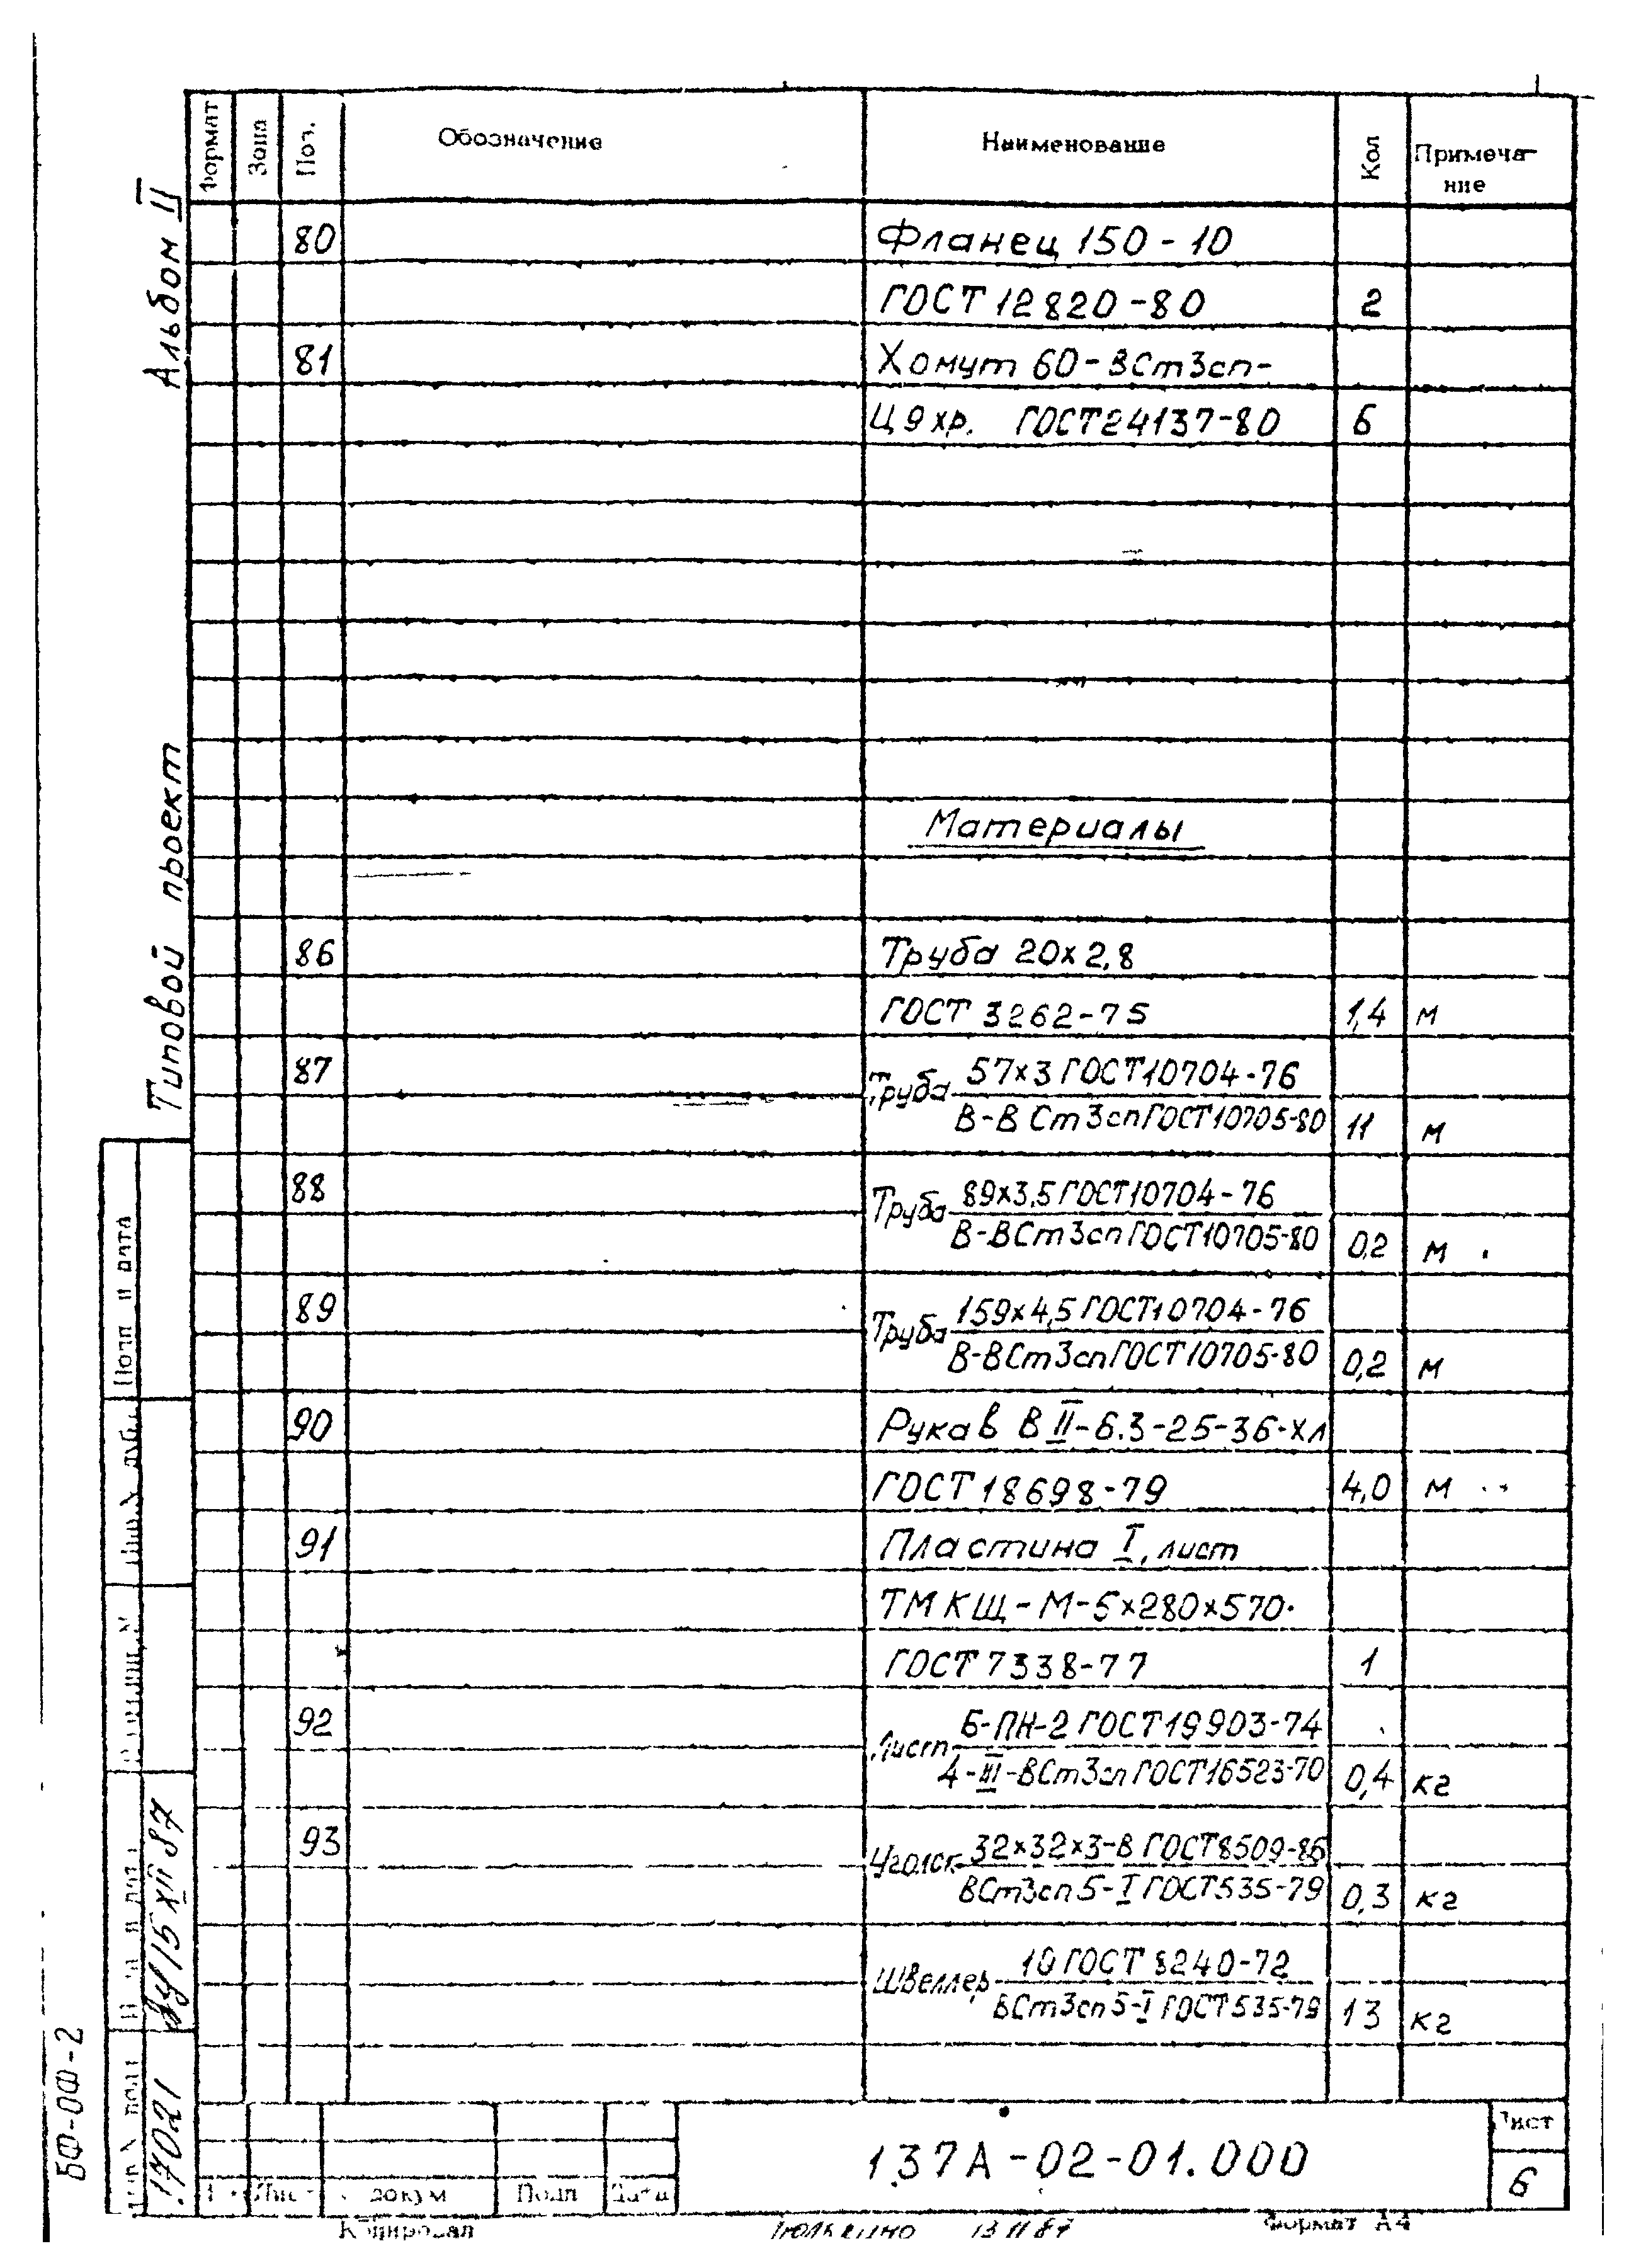 Формат Зона Поз. Обозначение Наименование Кол Примеча-
ние
Альбом II
80 Фланец 150-10
ГОСТ 12820-80 2
81 Хомут 60-ВСт3сп-
Ц9хр. ГОСТ24137-80 6
Материалы
Типовой проект
86 Труба 20х2,8
ГОСТ 3262-75 1,4 м
87 Труба 57х3 ГОСТ10704-76
В-ВСт3сп ГОСТ10705-80 11 м
88 Труба 89х3,5 ГОСТ10704-76
В-ВСт3сп ГОСТ10705-80 0,2 м
89 Труба 159х4,5 ГОСТ10704-76
В-ВСт3сп ГОСТ10705-80 0,2 м
90 Рукав В II-6.3-25-36-ХЛ
ГОСТ 18698-79 4,0 м
91 Пластина I, лист
ТМКЩ-М-5х280х570
ГОСТ 7338-77 1
92 Лист Б-ПН-2 ГОСТ19903-74
4-III-ВСт3сп ГОСТ16523-70 0,4 кг
93 Уголок 32х32х3-В ГОСТ8509-86
ВСт3сп5-I ГОСТ535-79 0,3 кг
Швеллер 10 ГОСТ 8240-72
ВСт3сп5-I ГОСТ535-79 13 кг
Подп и дата
15 XII 87
17021
БФ-0Ф-2
137А-02-01.000
Лист
6
Лист докум Подп Дата
Копировал 13 11 87 Формат А4